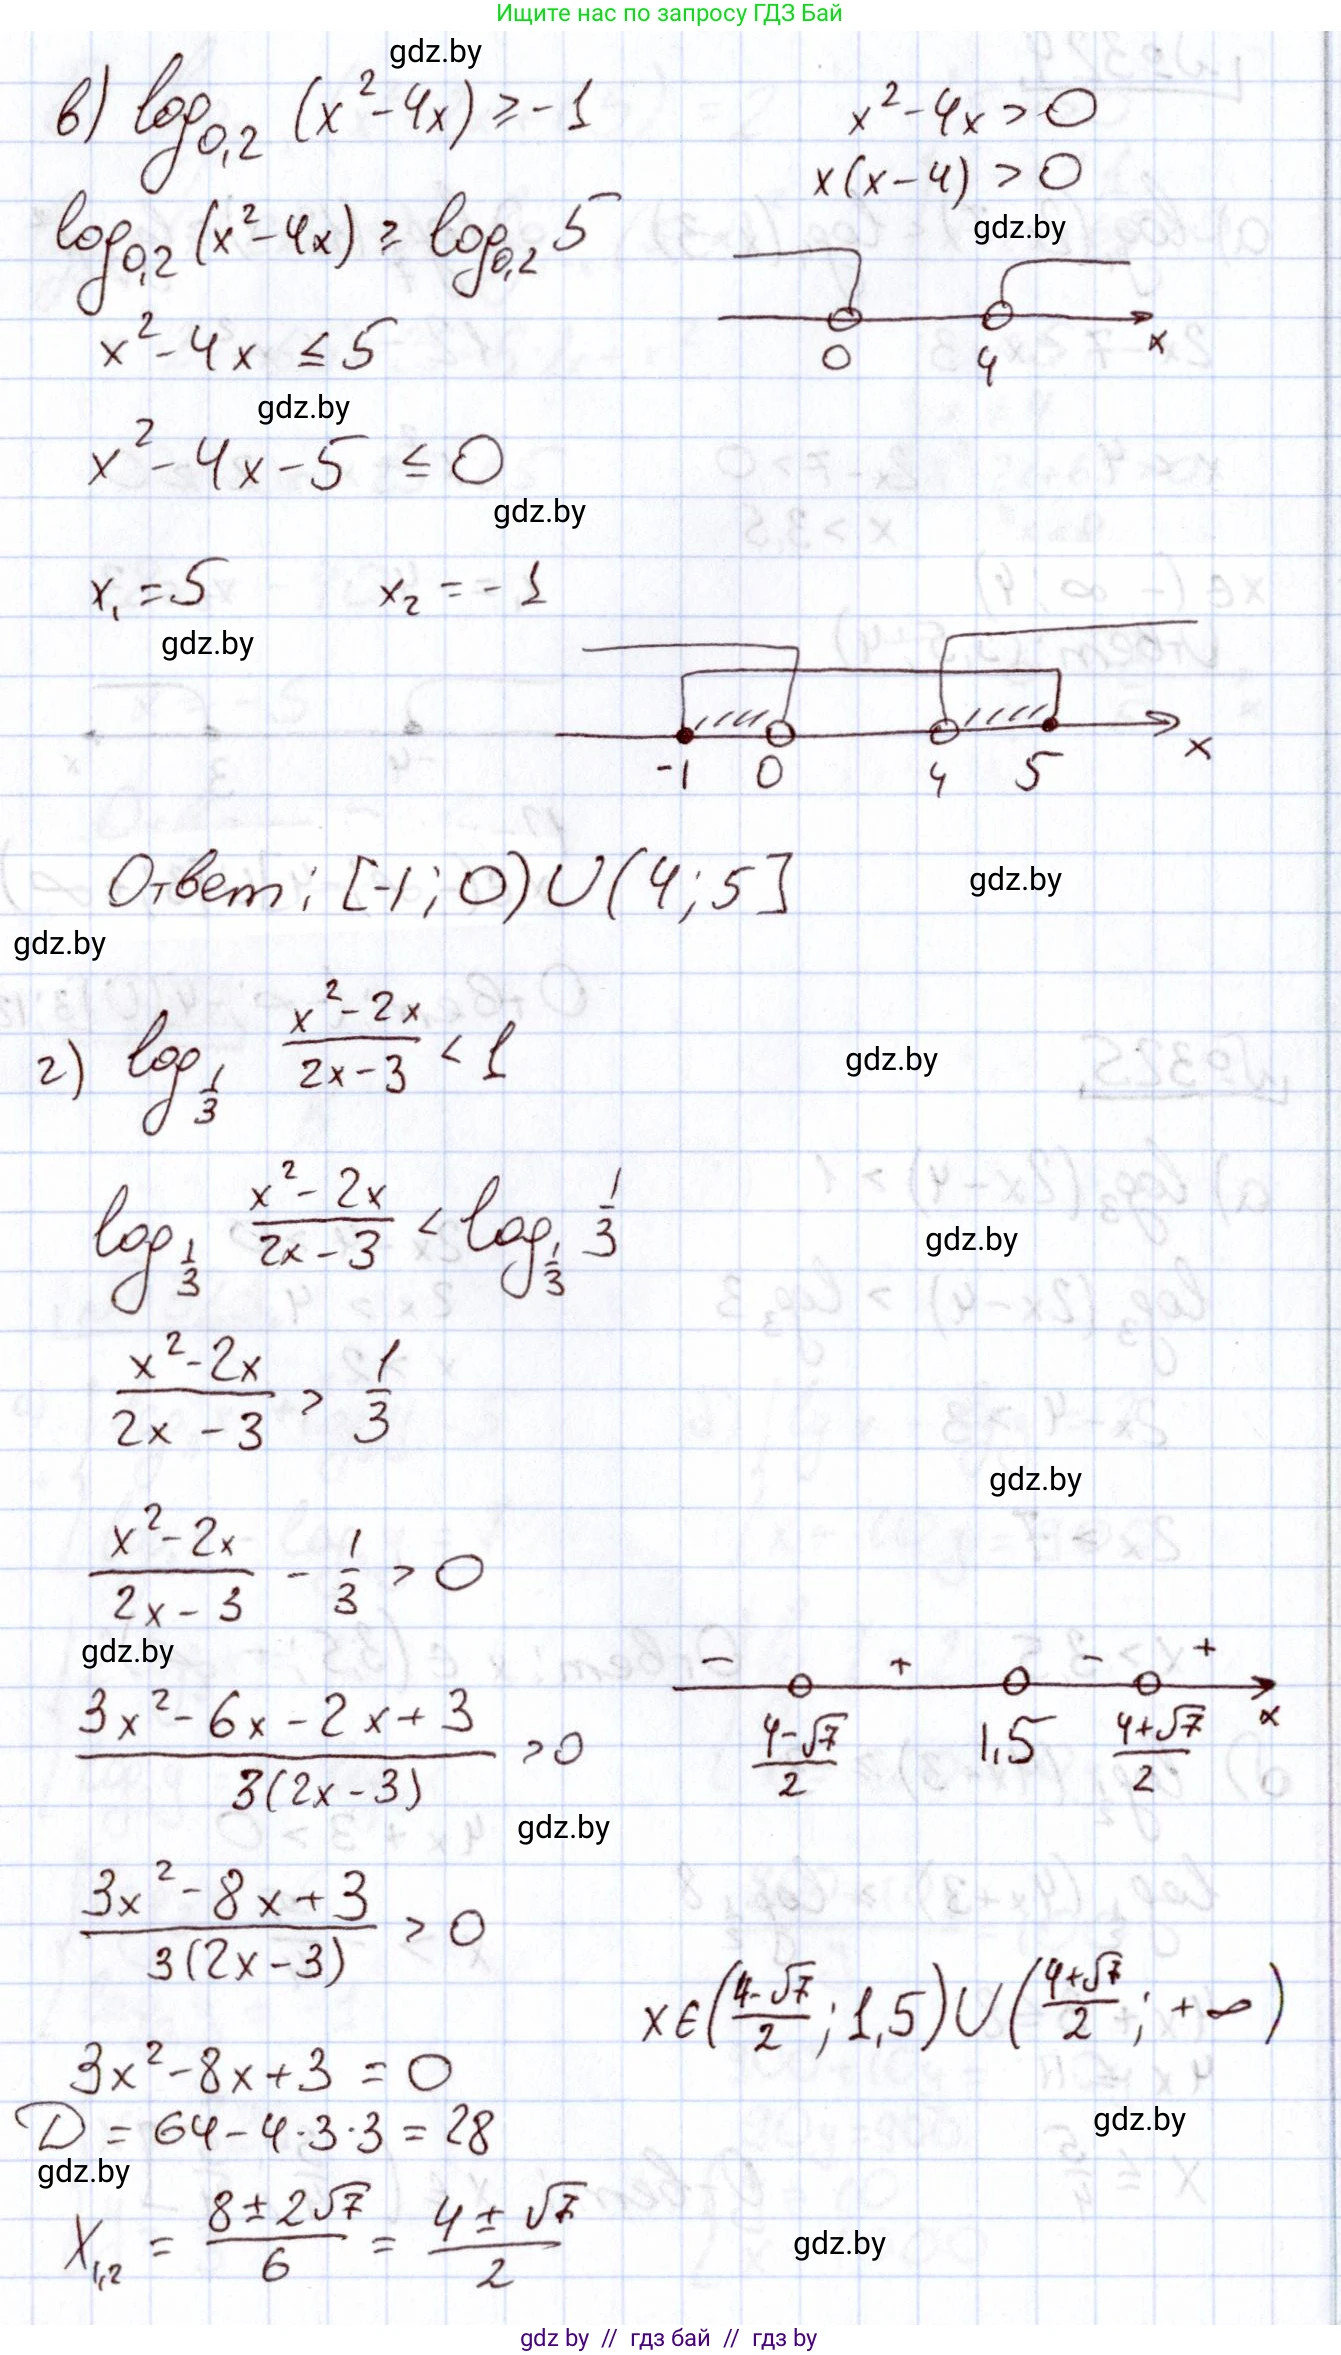 Ищите нас по запросу ГДЗ Бай
gdz.by
в) log₀,₂ (x² - 4x) ≥ -1
x² - 4x > 0
x(x - 4) > 0
gdz.by
log₀,₂ (x² - 4x) ≥ log₀,₂ 5
0 4 x
x² - 4x ≤ 5
gdz.by
x² - 4x - 5 ≤ 0
gdz.by
x₁ = 5 x₂ = -1
gdz.by
-1 0 4 5 x
Ответ: [-1; 0) ∪ (4; 5]
gdz.by
gdz.by
г) log_{1/3} (x² - 2x)/(2x - 3) < 1
gdz.by
log_{1/3} (x² - 2x)/(2x - 3) < log_{1/3} 1/3
gdz.by
(x² - 2x)/(2x - 3) > 1/3
gdz.by
(x² - 2x)/(2x - 3) - 1/3 > 0
gdz.by
- + - +
(4-√7)/2 1,5 (4+√7)/2 x
(3x² - 6x - 2x + 3)/(3(2x - 3)) > 0
gdz.by
(3x² - 8x + 3)/(3(2x - 3)) > 0
x ∈ ((4-√7)/2; 1,5) ∪ ((4+√7)/2; +∞)
3x² - 8x + 3 = 0
D = 64 - 4·3·3 = 28
gdz.by
gdz.by
X₁,₂ = (8 ± 2√7)/6 = (4 ± √7)/2
gdz.by
gdz by // гдз бай // гдз by